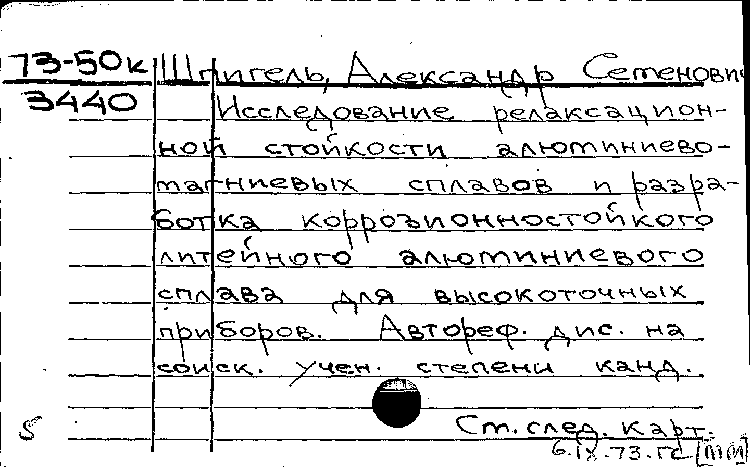 73-50к Шпигель, Александр Семенович
3440 Исследование релаксацион-
ной стойкости алюминиево-
магниевых сплавов и разра-
ботка коррозионностойкого
литейного алюминиевого
сплава для высокоточных
приборов. Автореф. дис. на
соиск. учен. степени канд.
См. след. карт.
6.IX.73.ГС [мм]